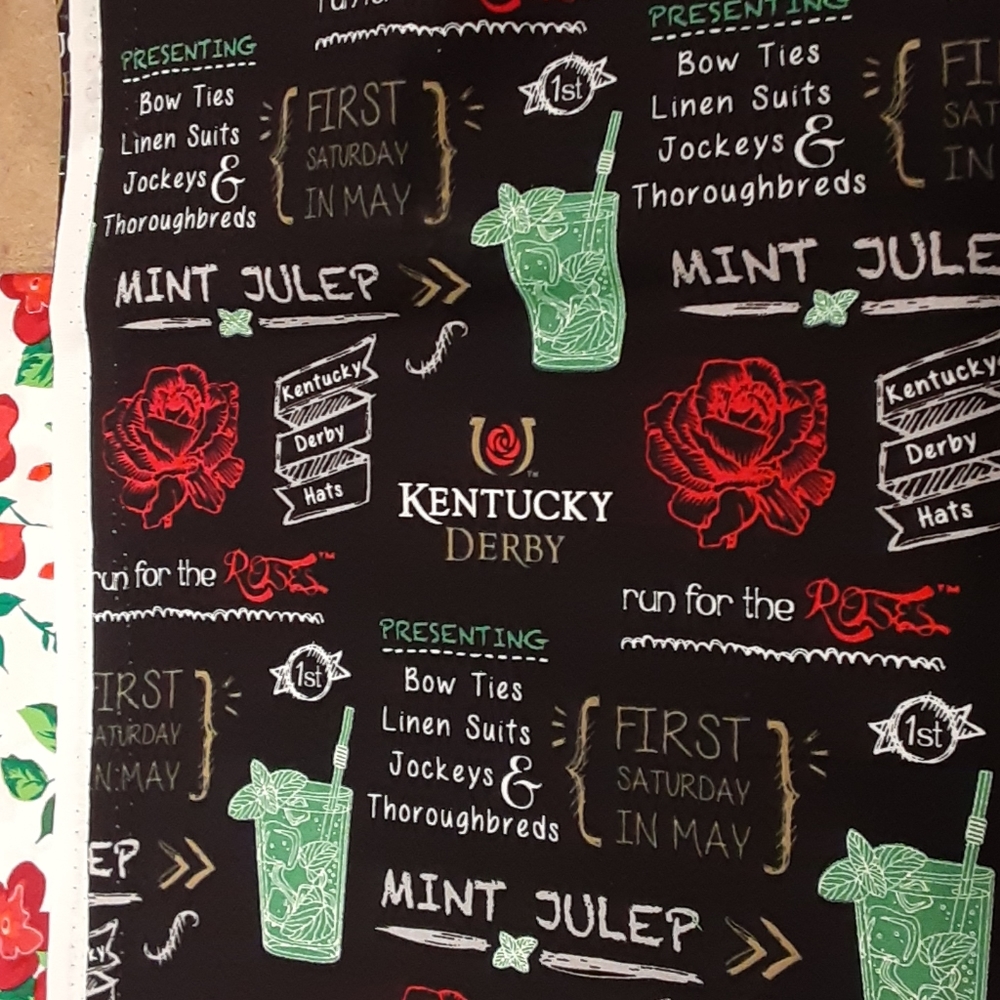 run for the
PRESENTING
Bow Ties
Linen Suits
Jockeys &
Thoroughbreds
FIRST
SATURDAY
IN MAY
1st
PRESENTING
Bow Ties
Linen Suits
Jockeys &
Thoroughbreds
FI
SAT
IN
MINT JULEP
MINT JULE
Kentucky
Derby
Hats
KENTUCKY
DERBY
TM
Kentucky
Derby
Hats
run for the Roses™
run for the Roses™
FIRST
ATURDAY
N MAY
1st
PRESENTING
Bow Ties
Linen Suits
Jockeys &
Thoroughbreds
FIRST
SATURDAY
IN MAY
1st
EP
MINT JULEP
KY